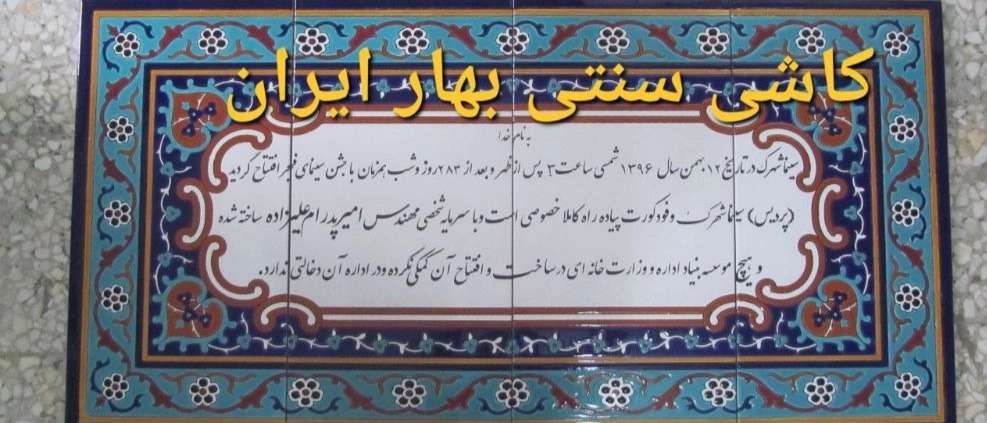 کاشی سنتی بهار ایران
به نام خدا
سینما شهرک در تاریخ ۱۲ بهمن سال ۱۳۹۶ شمسی ساعت ۳ پس از ظهر و بعد از ۲۸۳ روز و شب همزمان با جشن سینمای فجر افتتاح گردید
(پردیس) سینما شهرک وفودکورت پیاده راه کاملا خصوصی است و با سرمایه شخصی مهندس امیر پدرام علیزاده ساخته شده
و هیچ موسسه بنیاد اداره و وزارت خانه ای در ساخت و افتتاح آن کمکی نکرده ودر اداره آن دخالتی ندارد.